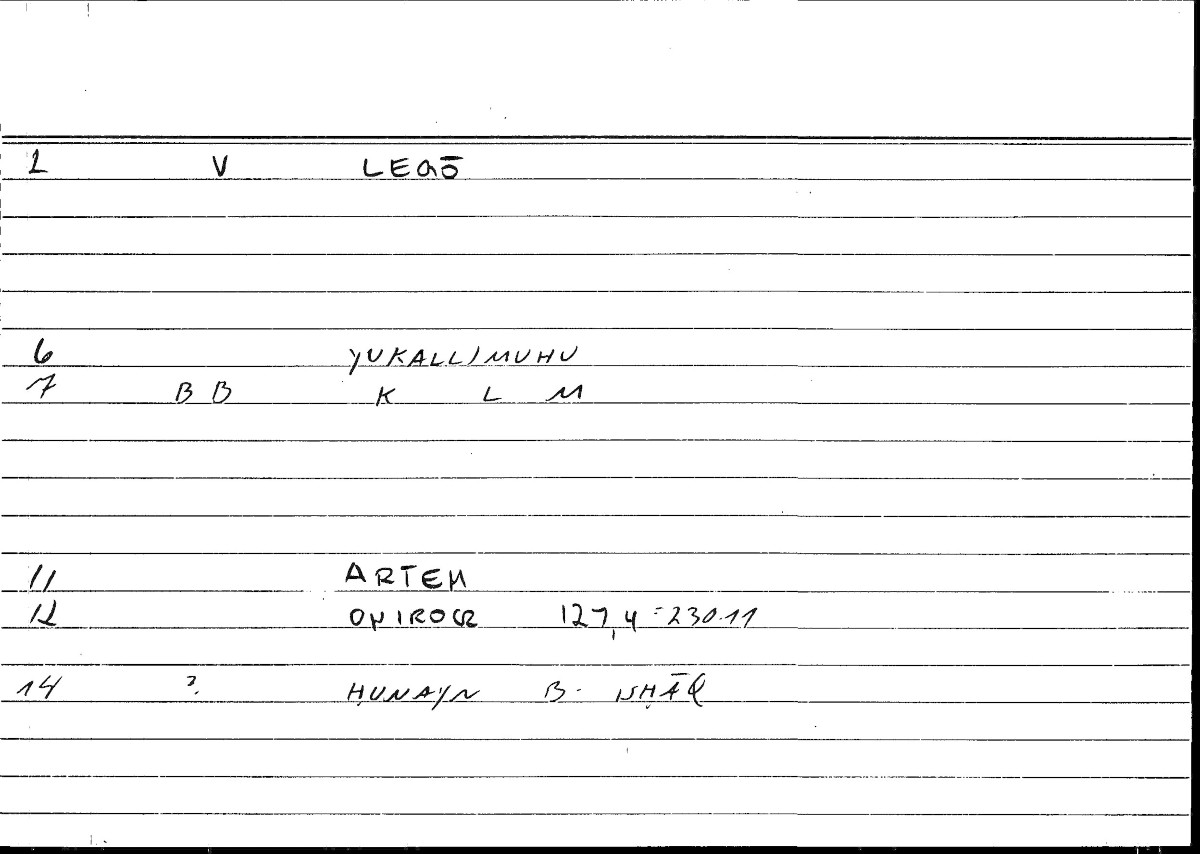 1 V LEGŌ
6 YUKALLIMUHU
7 B B K L M
11 ARTEM
12 ONIROCR 127,4 = 230.11
14 ? ḤUNAYN B. ISḤĀQ